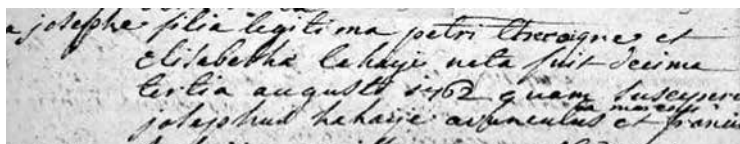 josephe filia legitima petri et
Elisabetha Lahaye nata fuit decima
tertia augusti 1762 quam susceper
josephus Lahaye avunculus et francis